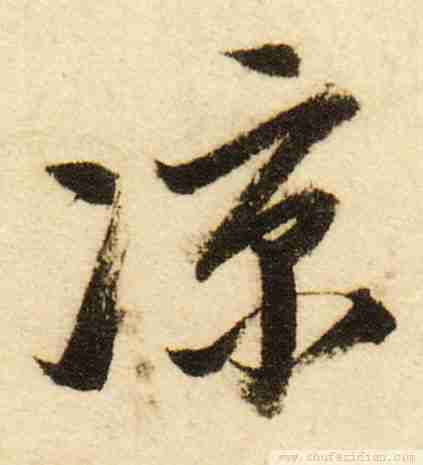 凉
www.shufazidian.com